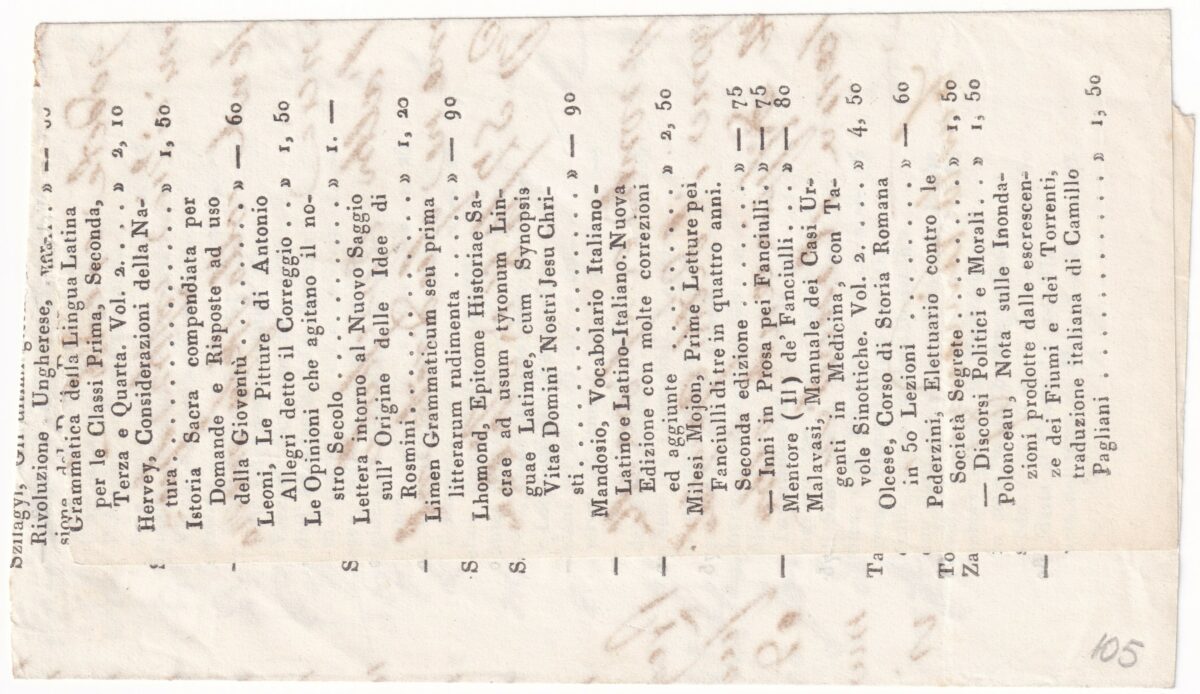 Szilagyi, Gli
Rivoluzione Ungherese, » —
Grammatica della Lingua Latina
per le Classi Prima, Seconda,
Terza e Quarta. Vol. 2. . . . » 2, 10
Hervey, Considerazioni della Na-
tura. . . . . . . . . . . . . . . . . » 1, 50
Istoria Sacra compendiata per
Domande e Risposte ad uso
della Gioventù . . . . . . . . » — 60
Leoni, Le Pitture di Antonio
Allegri detto il Correggio . . » 1, 50
Le Opinioni che agitano il no-
stro Secolo . . . . . . . . . . » 1. —
Lettera intorno al Nuovo Saggio
sull' Origine delle Idee di
Rosmini . . . . . . . . . . . . » 1, 20
Limen Grammaticum seu prima
litterarum rudimenta . . . . . » — 90
Lhomond, Epitome Historiae Sa-
crae ad usum tyronum Lin-
guae Latinae, cum Synopsis
Vitae Domini Nostri Jesu Chri-
sti. . . . . . . . . . . . . . . . » — 90
Mandosio, Vocabolario Italiano-
Latino e Latino-Italiano. Nuova
Edizione con molte correzioni
ed aggiunte . . . . . . . . . . » 2, 50
Milesi Mojon, Prime Letture pei
Fanciulli di tre in quattro anni.
Seconda edizione . . . . . . » — 75
— Inni in Prosa pei Fanciulli. » — 75
Mentore (Il) de' Fanciulli . . . » — 80
Malavasi, Manuale dei Casi Ur-
genti in Medicina, con Ta-
vole Sinottiche. Vol. 2. . . . » 4, 50
Olcese, Corso di Storia Romana
in 50 Lezioni . . . . . . . . . » — 60
Pederzini, Elettuario contro le
Società Segrete . . . . . . . . » 1, 50
— Discorsi Politici e Morali. . » 1, 50
Polonceau, Nota sulle Inonda-
zioni prodotte dalle escrescen-
ze dei Fiumi e dei Torrenti,
traduzione italiana di Camillo
Pagliani . . . . . . . . . . . . » 1, 50
S
—
S
—
S
S
—
—
—
Ta
To
Za
—
105